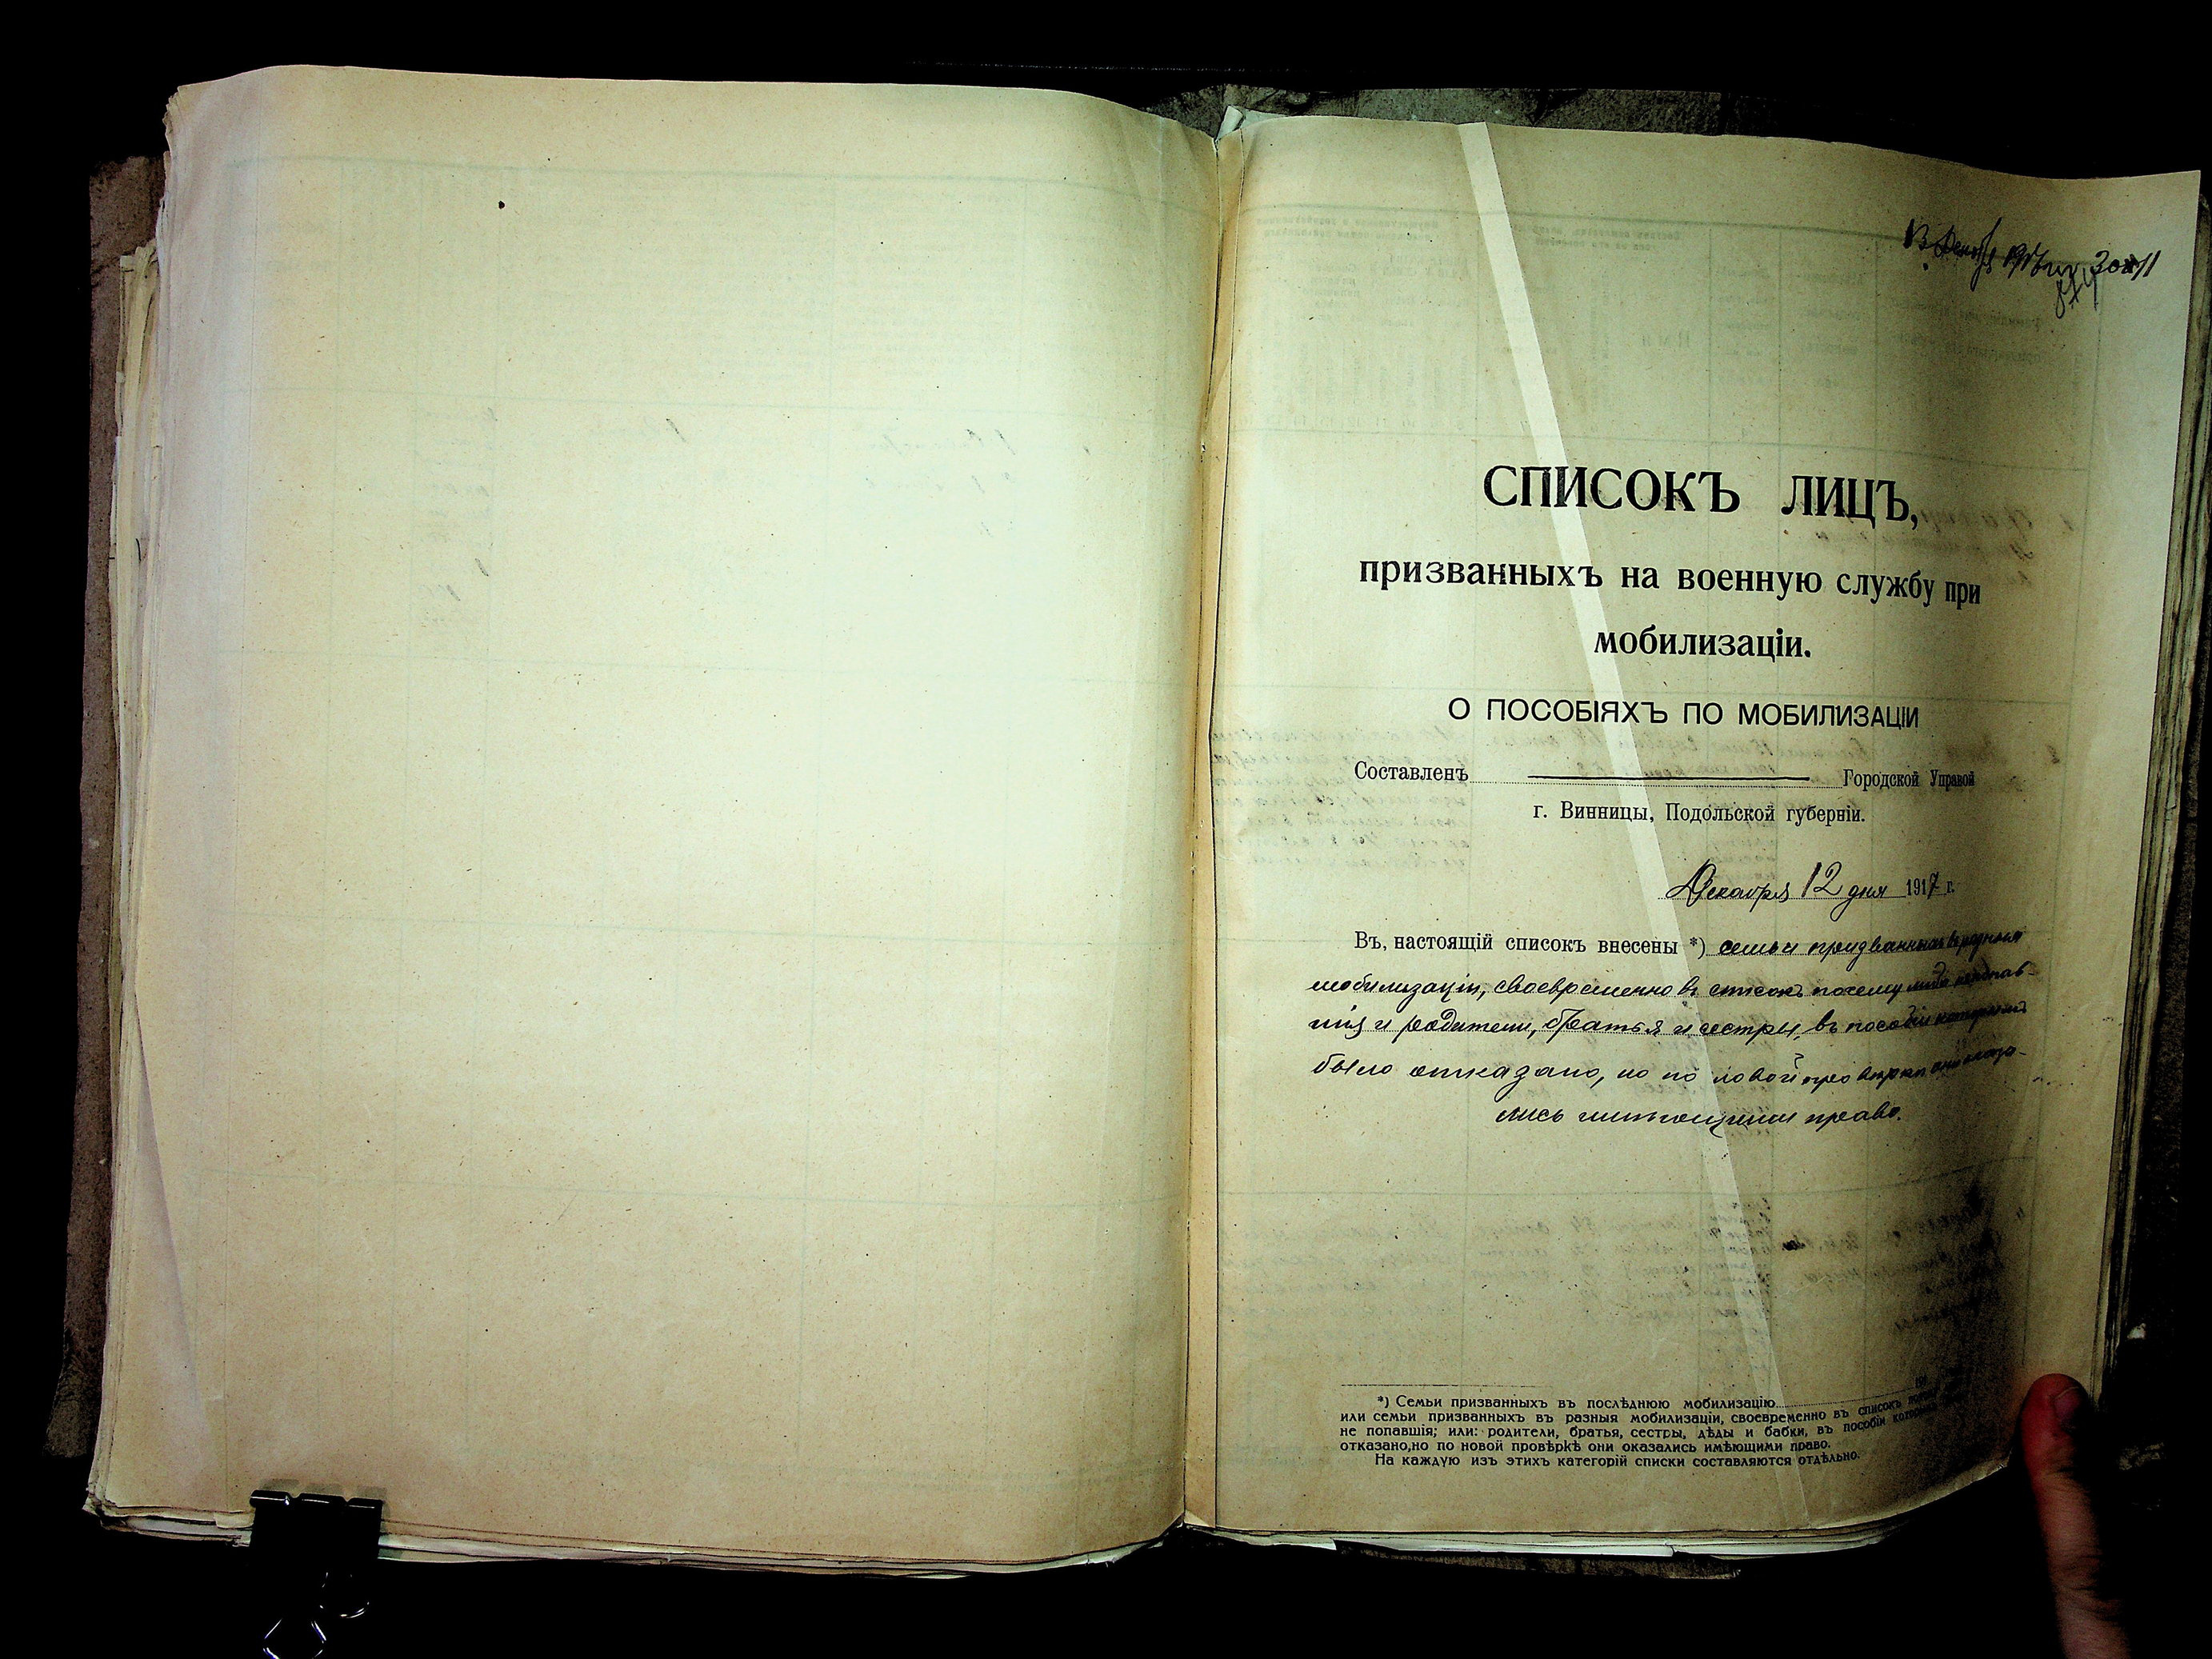 СПИСОКЪ ЛИЦЪ,
призванныхъ на военную службу при
мобилизаціи.
О ПОСОБІЯХЪ ПО МОБИЛИЗАЦІИ
Составленъ Городской Управой
г. Винницы, Подольской губерніи.
Декабря 12 дня 1917 г.
Въ, настоящій списокъ внесены *) семьи призванныхъ въ разныя
мобилизаціи, своевременно въ списокъ почему либо не попав-
шія и родители, братья и сестры, въ пособіи которымъ
было отказано, но по новой провѣркѣ они оказа-
лись имѣющими право.
*) Семьи призванныхъ въ послѣднюю мобилизацію
или семьи призванныхъ въ разныя мобилизаціи, своевременно въ списокъ
не попавшія; или: родители, братья, сестры, дѣды и бабки, въ пособіи которымъ
отказано,но по новой провѣркѣ они оказались имѣющими право.
На каждую изъ этихъ категорій списки составляются отдѣльно.